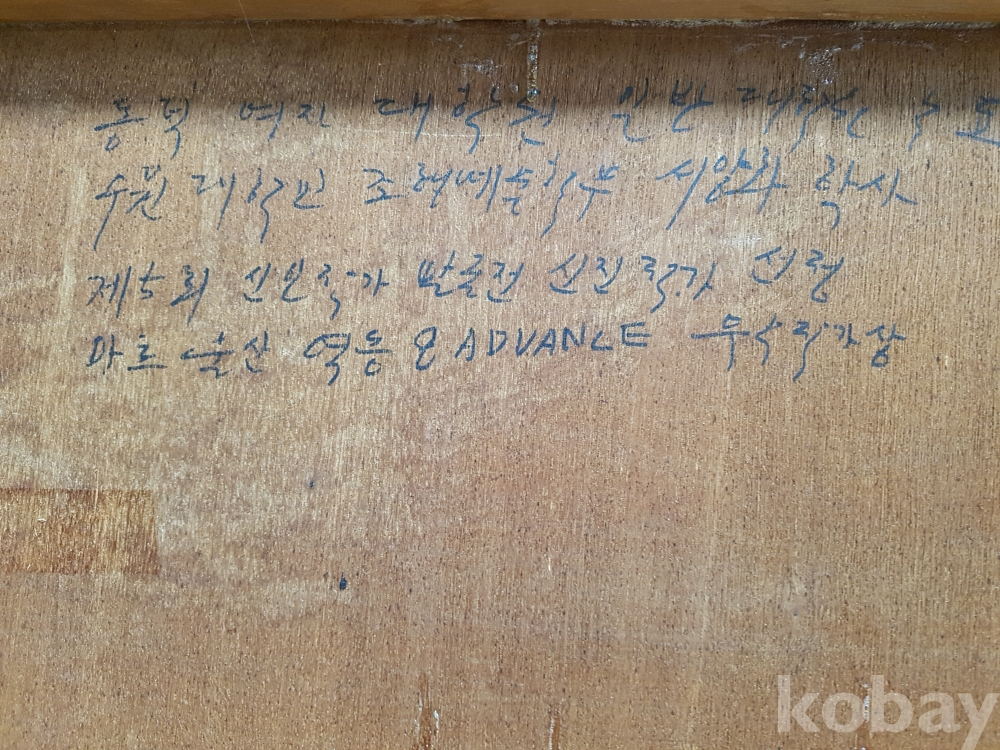 동덕 여자 대학원 일반 대학원 수료
수원 대학교 조형예술학부 서양화 학사
제5회 신인작가 발굴전 신진작가 선정
마로 역동 & ADVANCE 우수작가상
kobay